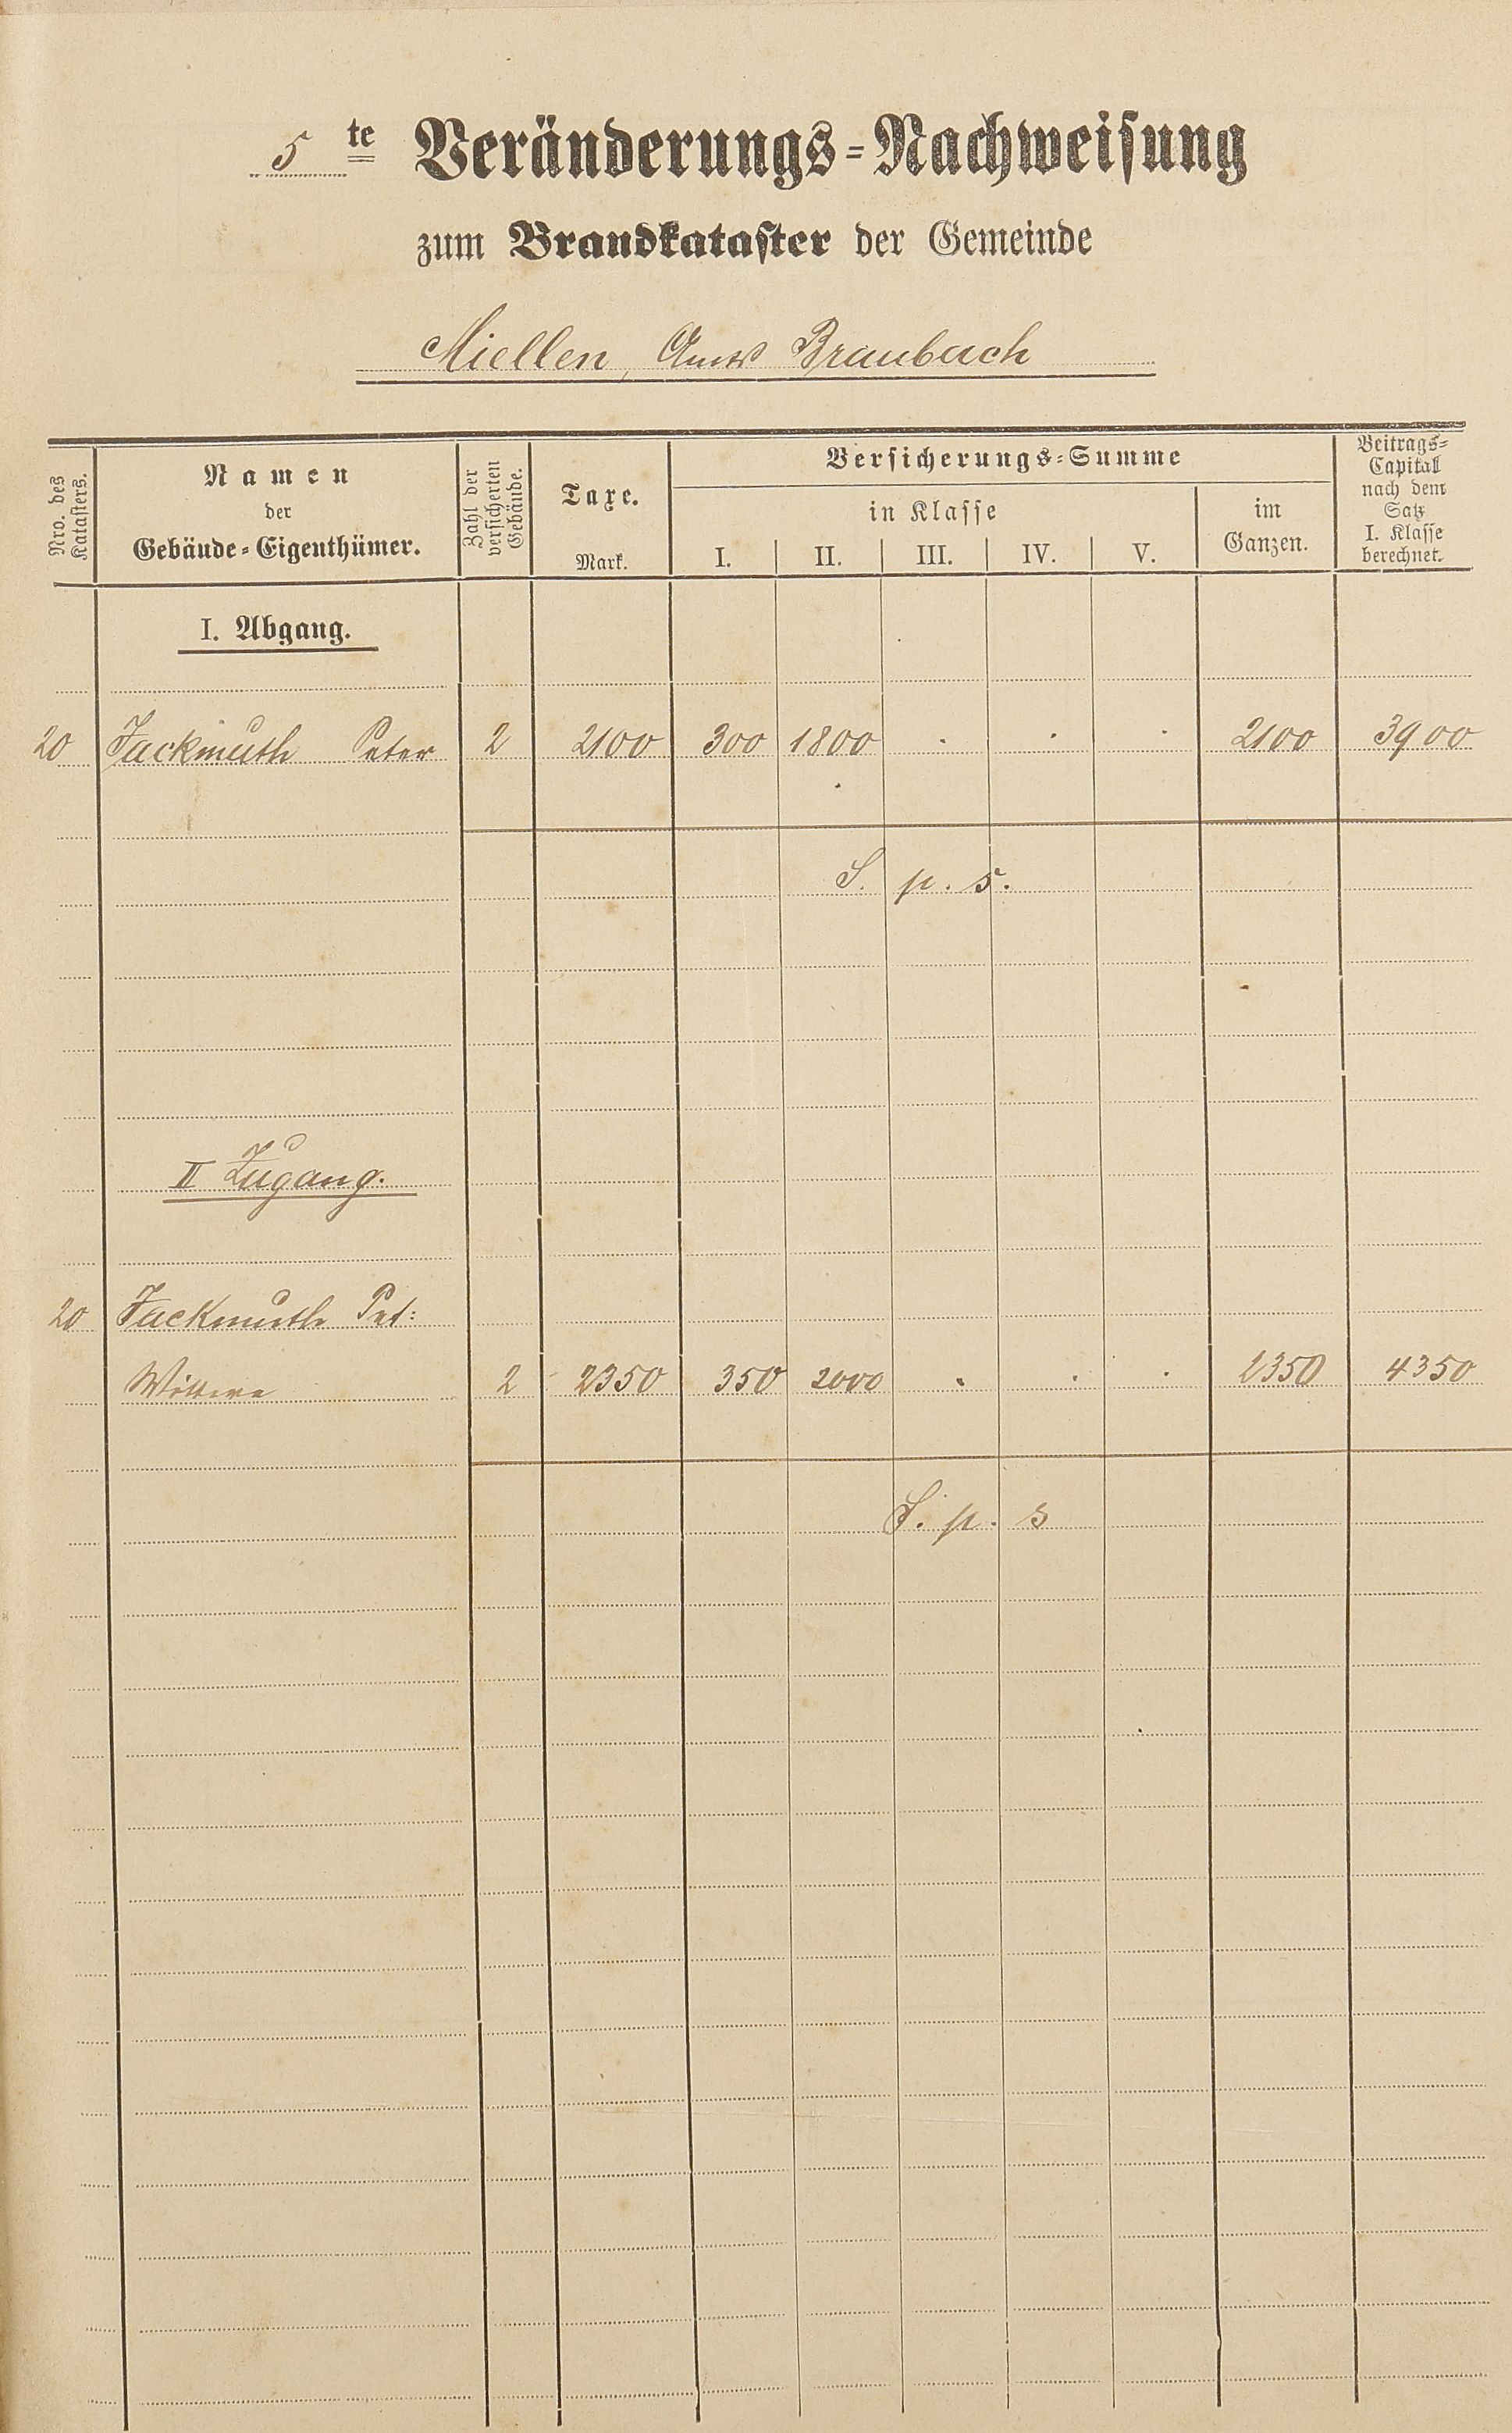 5te Veränderungs-Nachweisung
zum Brandkataster der Gemeinde
Miellen, Amts Braubach
Nro. des Katasters.
Namen
der
Gebäude-Eigenthümer.
Zahl der versicherten Gebäude.
Taxe.
Mark.
Versicherungs-Summe
in Klasse
I. II. III. IV. V.
im Ganzen.
Beitrags-Capital nach dem Satz I. Klasse berechnet.
I. Abgang.
20 Fackmuth Peter 2 2100 300 1800 . . . 2100 3900
S. p. s.
II Zugang.
20 Fackmuth Pet:
Wittwe 2 2350 350 2000 . . . 2350 4350
S. p. s